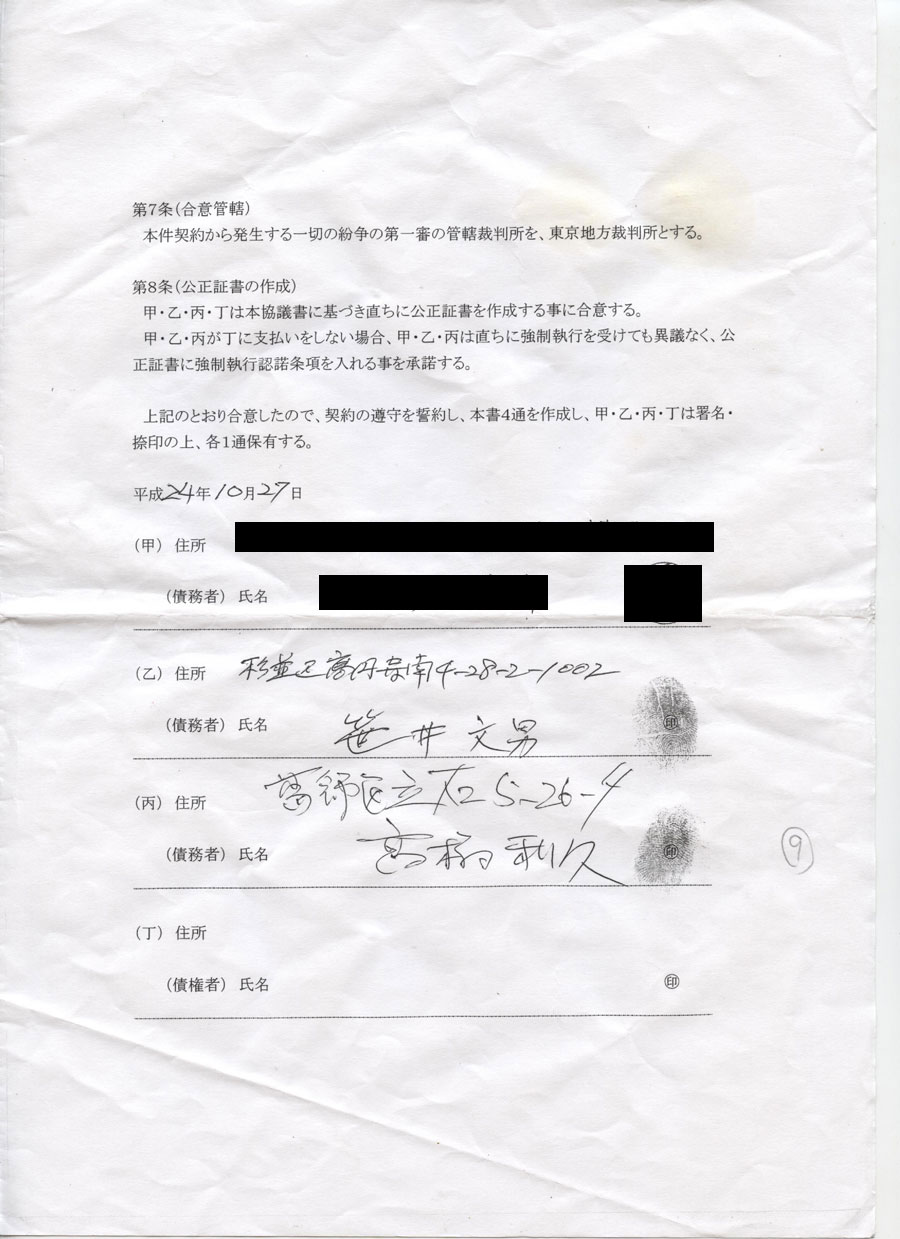 第7条（合意管轄）
本件契約から発生する一切の紛争の第一審の管轄裁判所を、東京地方裁判所とする。
第8条（公正証書の作成）
甲・乙・丙・丁は本協議書に基づき直ちに公正証書を作成する事に合意する。
甲・乙・丙が丁に支払いをしない場合、甲・乙・丙は直ちに強制執行を受けても異議なく、公
正証書に強制執行認諾条項を入れる事を承諾する。
上記のとおり合意したので、契約の遵守を誓約し、本書4通を作成し、甲・乙・丙・丁は署名・
捺印の上、各1通保有する。
平成24年10月27日
（甲） 住所
（債務者） 氏名
（乙） 住所 杉並区高円寺南4-28-2-1002
（債務者） 氏名 笹井文男 印
（丙） 住所 葛飾区立石5-26-4
（債務者） 氏名 高橋利久 印
9
（丁） 住所
（債権者） 氏名 印